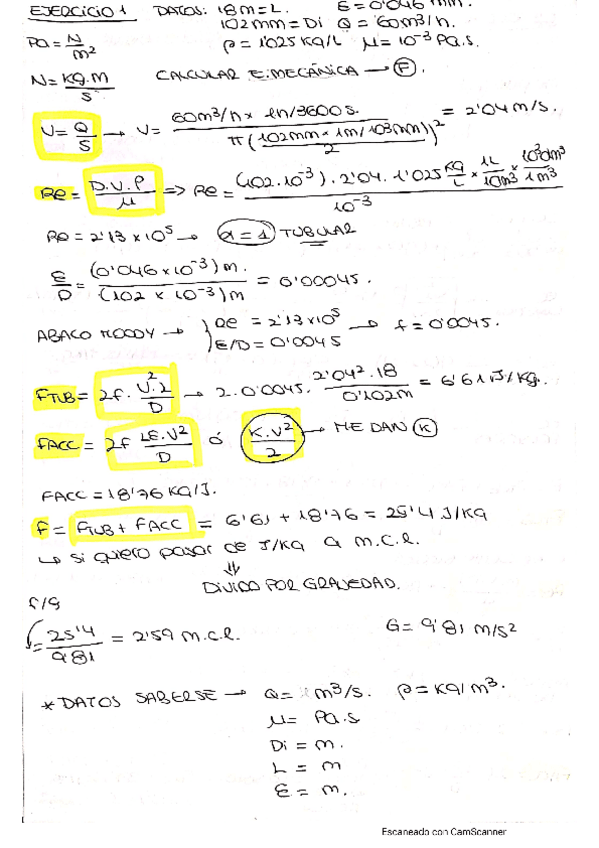 EJERCICIO 1 DATOS: 18m = L. ε = 0'046 mm.
102mm = Di Q = 60m³/h.
Pa = N/m² ρ = 1'025 Kg/L μ = 10⁻³ Pa.s.
N = KG.M/S CALCULAR E.MECÁNICA → F.
V = Q/S → V = 60m³/h × 1h/3600s. / π (102mm × 1m/10³mm / 2)² = 2'04 m/s.
Re = D.V.ρ/μ => Re = (102.10⁻³).2'04.1'025 KG/L × 1L/10m³ × 10³dm³/1m³ / 10⁻³
Re = 2'13 × 10⁵ → α = 1 TUBULAR
ε/D = (0'046×10⁻³)m. / (102 × 10⁻³)m = 0'00045.
ABACO MOODY → Re = 2'13×10⁵ → f = 0'0045.
E/D = 0'0045
FTUB = 2f. V².L/D → 2.0'0045. 2'04².18/0'102m = 6'61 J/Kg.
FACC = 2f LE.V²/D ó K.V²/2 → ME DAN K
FACC = 18'76 KG/J.
F = FTUB + FACC = 6'61 + 18'76 = 25'4 J/KG
↳ si quiero pasar de J/KG a m.c.l.
⇓
DIVIDO POR GRAVEDAD.
F/G
= 25'4/9'81 = 2'59 m.c.l. G = 9'81 m/s²
* DATOS SABERSE → Q = m³/s. ρ = KG/m³.
μ = Pa.s
Di = m.
L = m
ε = m.
Escaneado con CamScanner